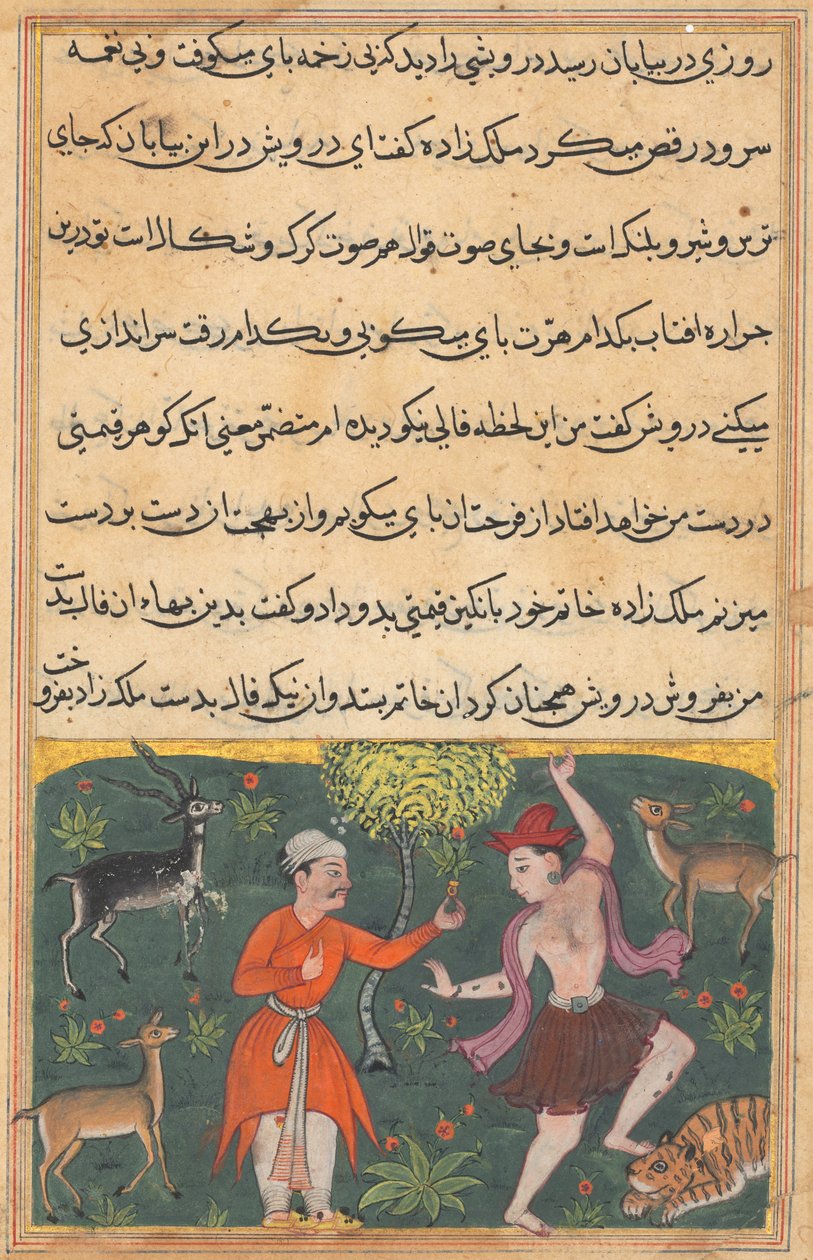 روزي در بيابان رسيد درويشي را ديد كه بي زخمه باي ميكوفت و بي نغمه
سرود رقص ميكرد ملك زاده كفت اي درويش در اين بيابان كه جاي
ترس و شير و بلنك است و بجاي صوت قوال هم صوت كرك و شكال است تو درين
حراره افتاب بكدام هزّت باي ميكوبي و بكدام رقت سراندازي
ميكني درويش كفت من اين لحظه فالي نيكو ديده ام متضمّن معني انكه كوهر قيمتي
در دست من خواهد افتاد از فرحت ان باي ميكوبم و از بهجت ان دست بر دست
ميزنم ملك زاده خاتم خود با نكين قيمتي بدو داد و كفت بدين بهاء ان فال بدست
من بفروش درويش همجنان كرد ان خاتم بستد و ان نيك فال بدست ملك زاد بفروخت